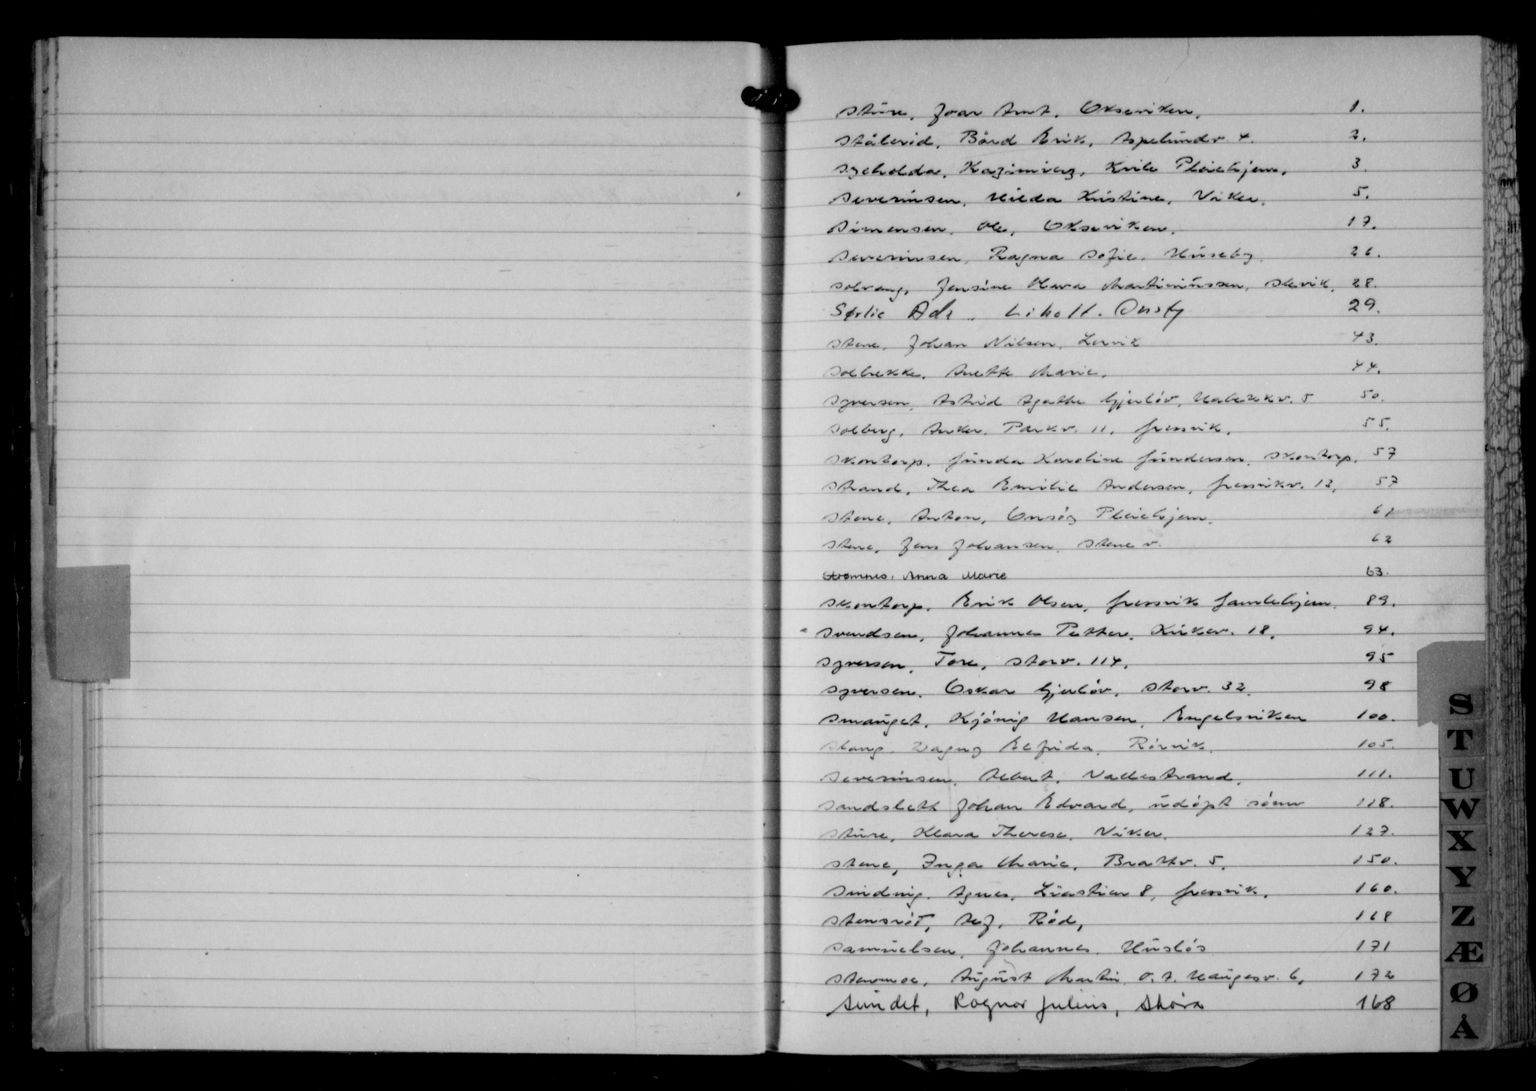 Sture, Joar Arnt, Okseviken, 1.
Stålerød, Bård Erik, Aspelundv. 4. 2.
Szcholda, Kazimierz, Pleiehjem, 3.
Severinsen, Hilda Kristine, Viker, 5.
Simensen, Ole, Okseviken, 17.
Severinsen, Ragna Sofie, Huseby, 26.
Solvang, Jensine Olava Martiniussen, Slevik, 28.
Sørlie Ada. Onsøy 29.
Stene, Johan Nilsen, Lervik 43.
Solbrekke, Anette Marie, 44.
Syversen, Astrid Agathe Gjerløv, 5 50.
Solberg, Anker, Parkv. 11, Gressvik, 55.
Skontorp, Gunda Karoline Gundersen, Skontorp, 57
Strand, Thea Emilie Andersen, Gressvikv. 13, 57
Stene, Anton, Onsøy Pleiehjem, 61
Stene, Jens Johansen, Stene v. 62
Anna Marie 63.
Skontorp, Erik Olsen, Gressvik Gamlehjem, 89.
Svendsen, Johannes Petter, Kirkev. 18, 94.
Syversen, Tore, Storv. 114, 95
Syversen, Oskar Gjerløv, Storv. 32, 98
Smauget, Hansen, Engelsviken 100.
Stang, Dagny Elfrida, Rörvik, 105.
Severinsen, Albert, Vallestrand, 111.
Sandsleth Johan Edvard, udöpt sönn 118.
Sture, Klara Therese, Viker, 127.
Stene, Inga Marie, Brattv. 5, 150.
Sinding, Agnes, 8, Gressvik, 160.
Stensröt, Alf, Röd, 168
Samuelsen, Johannes, 171
August Martin, O. A. Haugesv. 6, 172
Sundet, Ragnar Julius, Skåra 168
S
T
U
W
X
Y
Z
Æ
Ø
Å